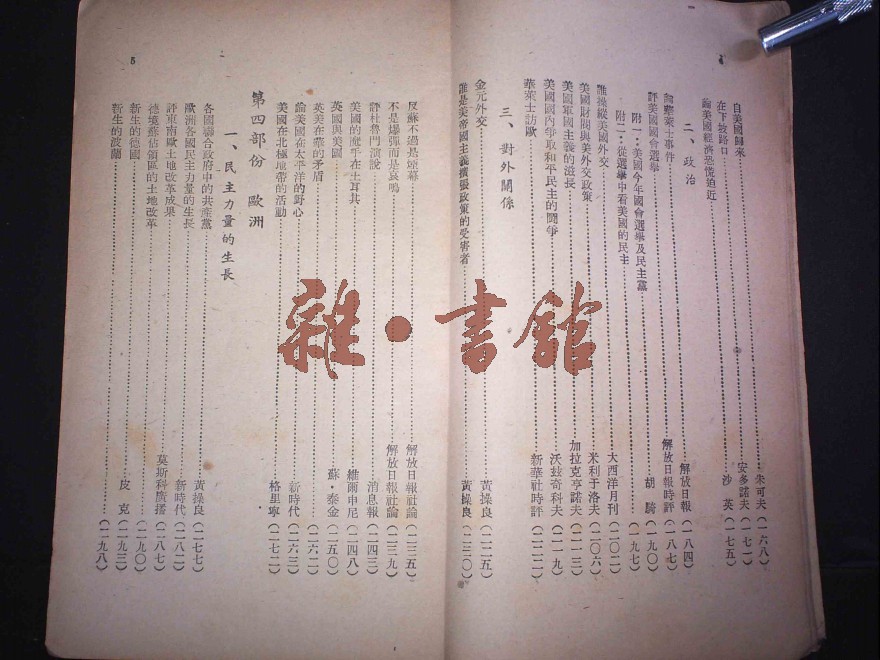 4
自美國歸來……朱可夫(一六八)
在下坡路口……安多諾夫(一七一)
論美國經濟恐慌迫近……沙英(一七五)
二、政治
論華萊士事件……解放日報(一八四)
評美國國會選舉……解放日報時評(一八七)
附一:美國今年國會選舉及民主黨……胡騎(一九〇)
附二:從選舉中看美國的民主……(一九七)
誰操縱美國外交……大西洋月刊(二〇二)
美國財閥與美外交政策……米利于洛夫(二〇六)
美國軍國主義的滋長……加拉克亨諾夫(二一三)
美國國內爭取和平民主的鬥爭……沃茲奇科夫(二一九)
華萊士訪歐……新華社時評(二二二)
三、對外關係
金元外交……黃操良(二二五)
誰是美帝國主義擴張政策的受害者……黃操良(二三〇)
5
反蘇不過是煙幕……解放日報社論(二三五)
不是爆彈而是哀鳴……解放日報社論(二三九)
評杜魯門演說……消息報(二四三)
美國的魔手在土耳其……維爾申尼(二四八)
英國與美國……蘇·泰金(二五〇)
英美在華的矛盾……(二六二)
論美國在太平洋的野心……新時代(二六三)
美國在北極地帶的活動……格里寧(二七二)
第四部份 歐洲
一、民主力量的生長
各國聯合政府中的共產黨……黃操良(一七七)
歐洲各國民主力量的生長……新時代(一八二)
評東南歐土地改革成果……莫斯科廣播(一八七)
德境蘇佔領區的土地改革……(一九〇)
新生的德國……皮克(一九三)
新生的波蘭……(一九八)
雜·書館